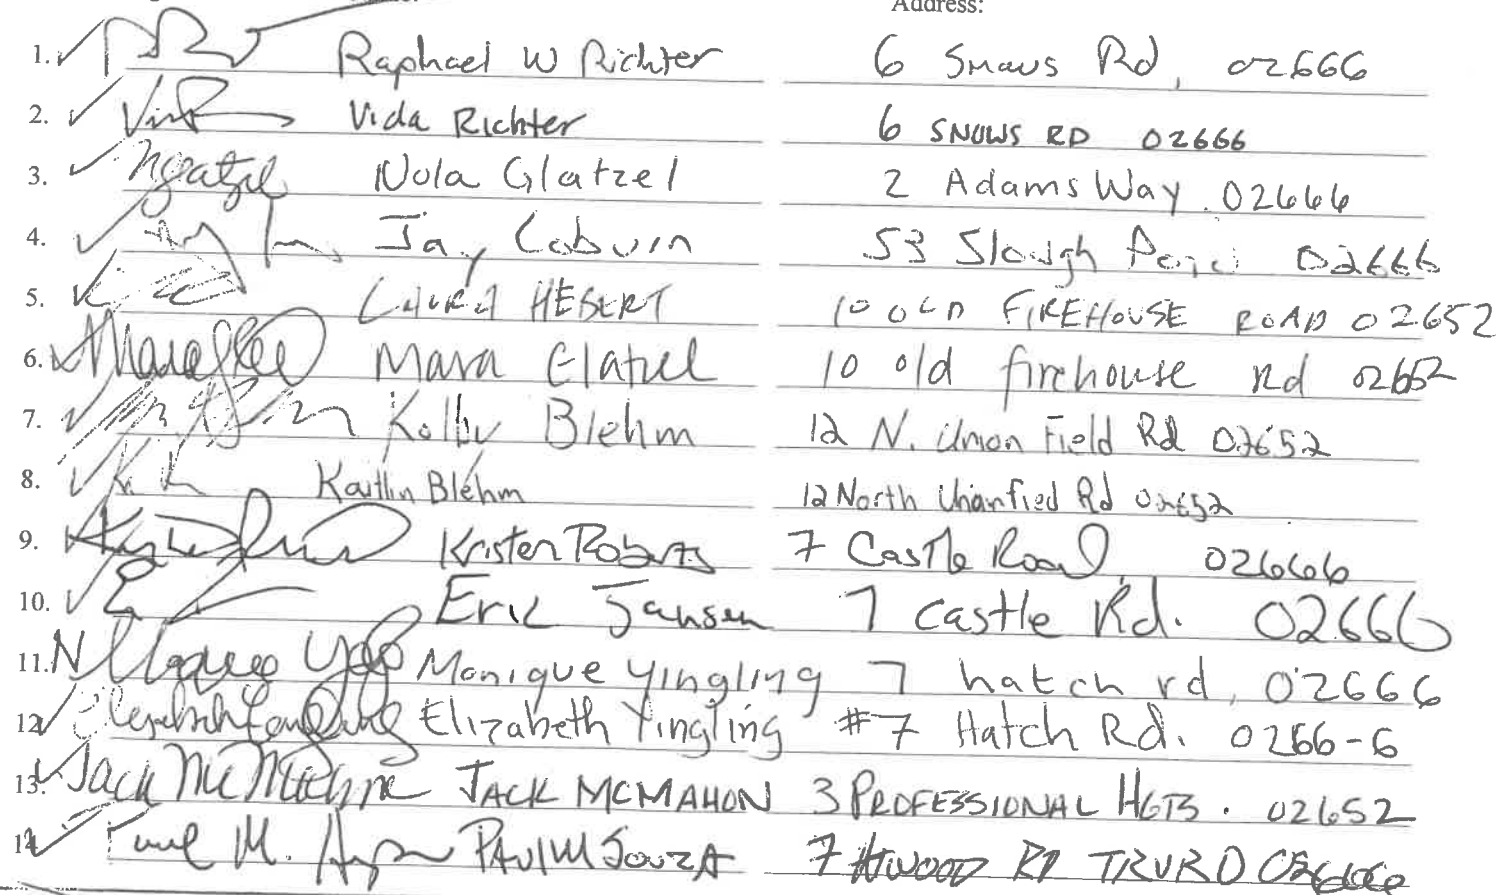 Address:
1. Raphael W Richter 6 Snows Rd, 02666
2. Vida Richter 6 SNOWS RD 02666
3. Nola Glatzel 2 Adams Way. 02666
4. Jay Coburn 53 Slough Pond 02666
5. LAURA HEBERT 10 OLD FIREHOUSE ROAD 02652
6. Mara Glatzel 10 old firehouse Rd 02652
7. Kolby Blehm 12 N. Union Field Rd 02652
8. Kaitlin Blehm 12 North Unionfied Rd 02652
9. Kristen Roberts 7 Castle Road, 02666
10. Eric Jansen 7 Castle Rd. 02666
11. N Monique Yingling 7 hatch rd, 02666
12. Elizabeth Yingling #7 Hatch Rd. 0266-6
13. Jack McMahon JACK MCMAHON 3 PROFESSIONAL HGTS. 02652
14. Paul M. PAUL M SOUZA 7 ATWOOD RD TRURO 02666